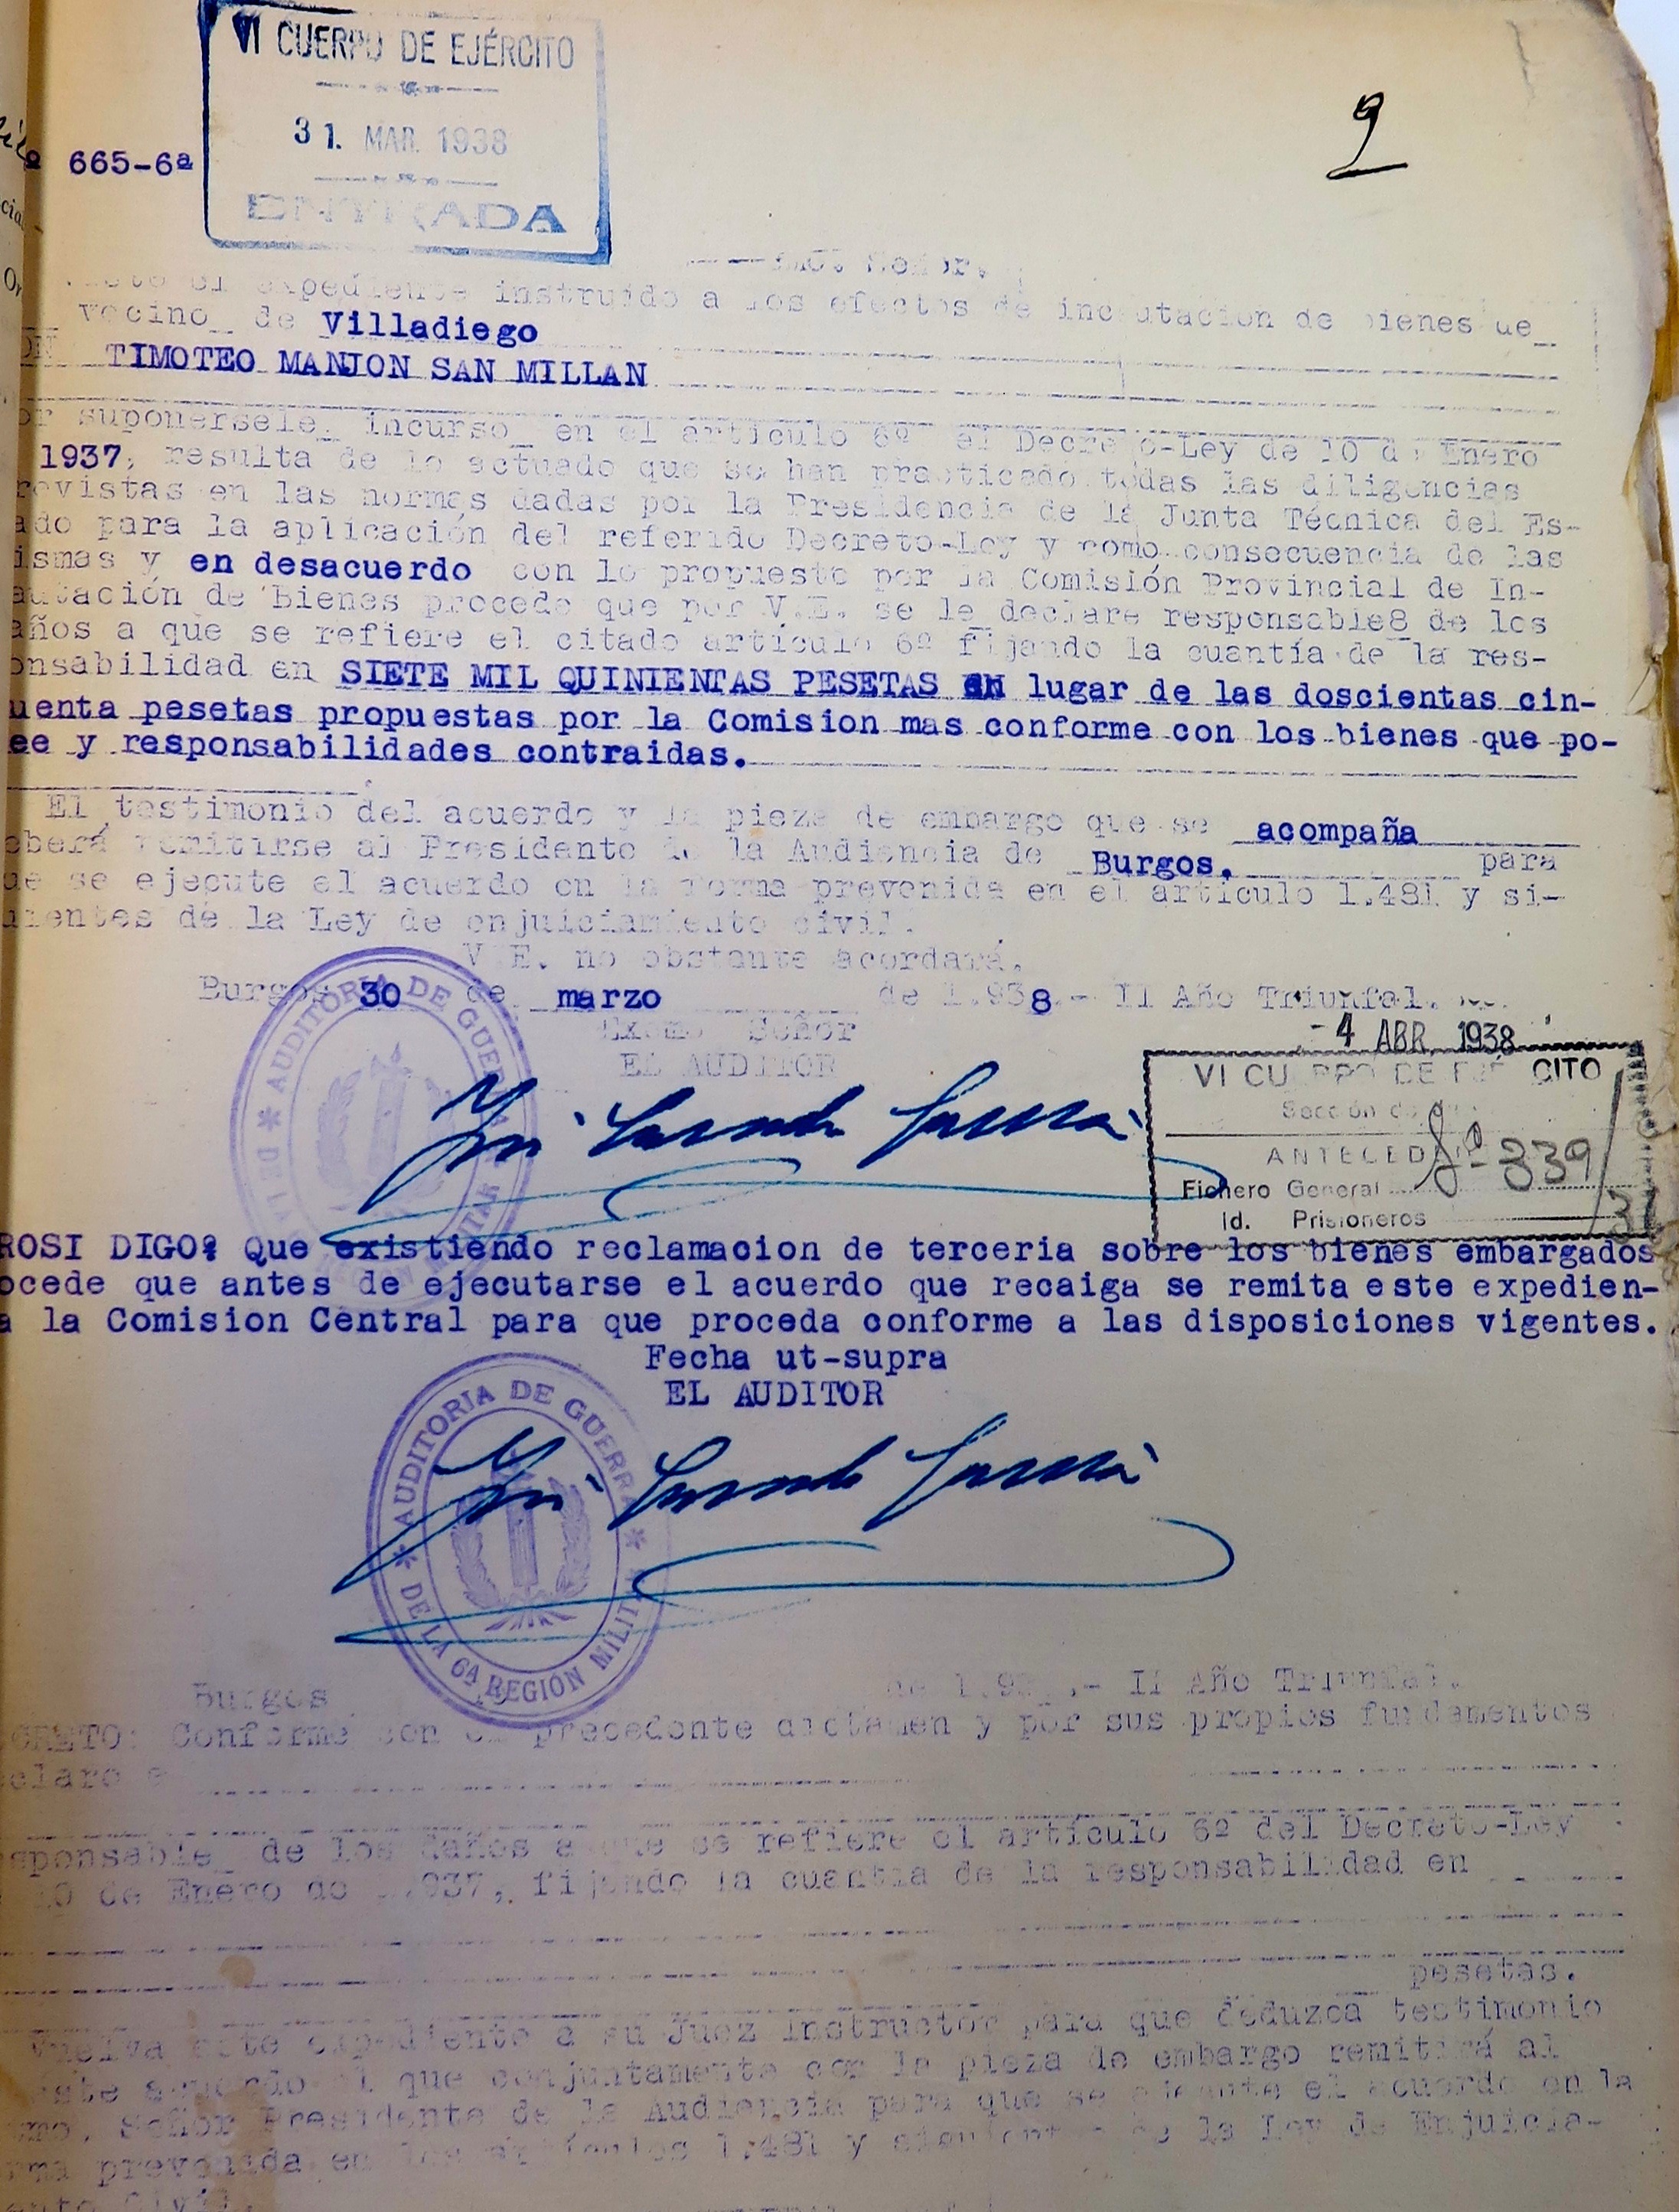 VI CUERPO DE EJÉRCITO
31. MAR. 1938
ENTRADA
9
º 665-6ª
Señor.
expediente instruido a los efectos de incautacion de bienes de
vecino_ de Villadiego
TIMOTEO MANJON SAN MILLAN
or suponersele_ incurso_ en el artículo 6º el Decreto-Ley de 10 de Enero
1937, resulta de lo actuado que se han practicado todas las diligencias
revistas en las normas dadas por la Presidencia de la Junta Técnica del Es-
ado para la aplicación del referido Decreto-Ley y como consecuencia de las
ismas y en desacuerdo con lo propuesto por la Comisión Provincial de In-
autación de Bienes procede que por V.E. se le declare responsable8 de los
años a que se refiere el citado artículo 6º fijando la cuantía de la res-
onsabilidad en SIETE MIL QUINIENTAS PESETAS EN lugar de las doscientas cin-
uenta pesetas propuestas por la Comision mas conforme con los bienes que po-
ee y responsabilidades contraidas.
El testimonio del acuerdo y la pieza de embargo que se acompaña
eberá remitirse al Presidente de la Audiencia de Burgos. para
ue se ejecute el acuerdo en la forma prevenida en el artículo 1.481 y si-
uientes de la Ley de enjuiciamiento civil.
V.E. no obstante acordará.
Burgos 30 de marzo de 1.938.- II Año Triunfal.
Excmo Señor
EL AUDITOR
AUDITORIA DE GUERRA
-4 ABR. 1938
VI CUERPO DE EJERCITO
Sección de
ANTECED
Fichero General Sº- 339/37
Id. Prisioneros
ROSI DIGO: Que existiendo reclamacion de terceria sobre los bienes embargados
ocede que antes de ejecutarse el acuerdo que recaiga se remita este expedien-
a la Comision Central para que proceda conforme a las disposiciones vigentes.
Fecha ut-supra
EL AUDITOR
AUDITORIA DE GUERRA * DE LA 6ª REGIÓN MILITAR *
Burgos de 1.93 .- II Año Triunfal.
CRETO: Conforme con el precedente dictamen y por sus propios fundamentos
eclaro
sponsable_ de los daños a que se refiere el artículo 6º del Decreto-Ley
10 de Enero de 1.937, fijando la cuantía de la responsabilidad en
pesetas.
Vuelva este expediente a su Juez Instructor para que deduzca testimonio
este acuerdo el que conjuntamente con la pieza de embargo remitirá al
cmo. Señor Presidente de la Audiencia para que se ejecute el acuerdo en la
rma prevenida en los artículos 1.481 y siguientes de la Ley de Enjuicia-
ento Civil.